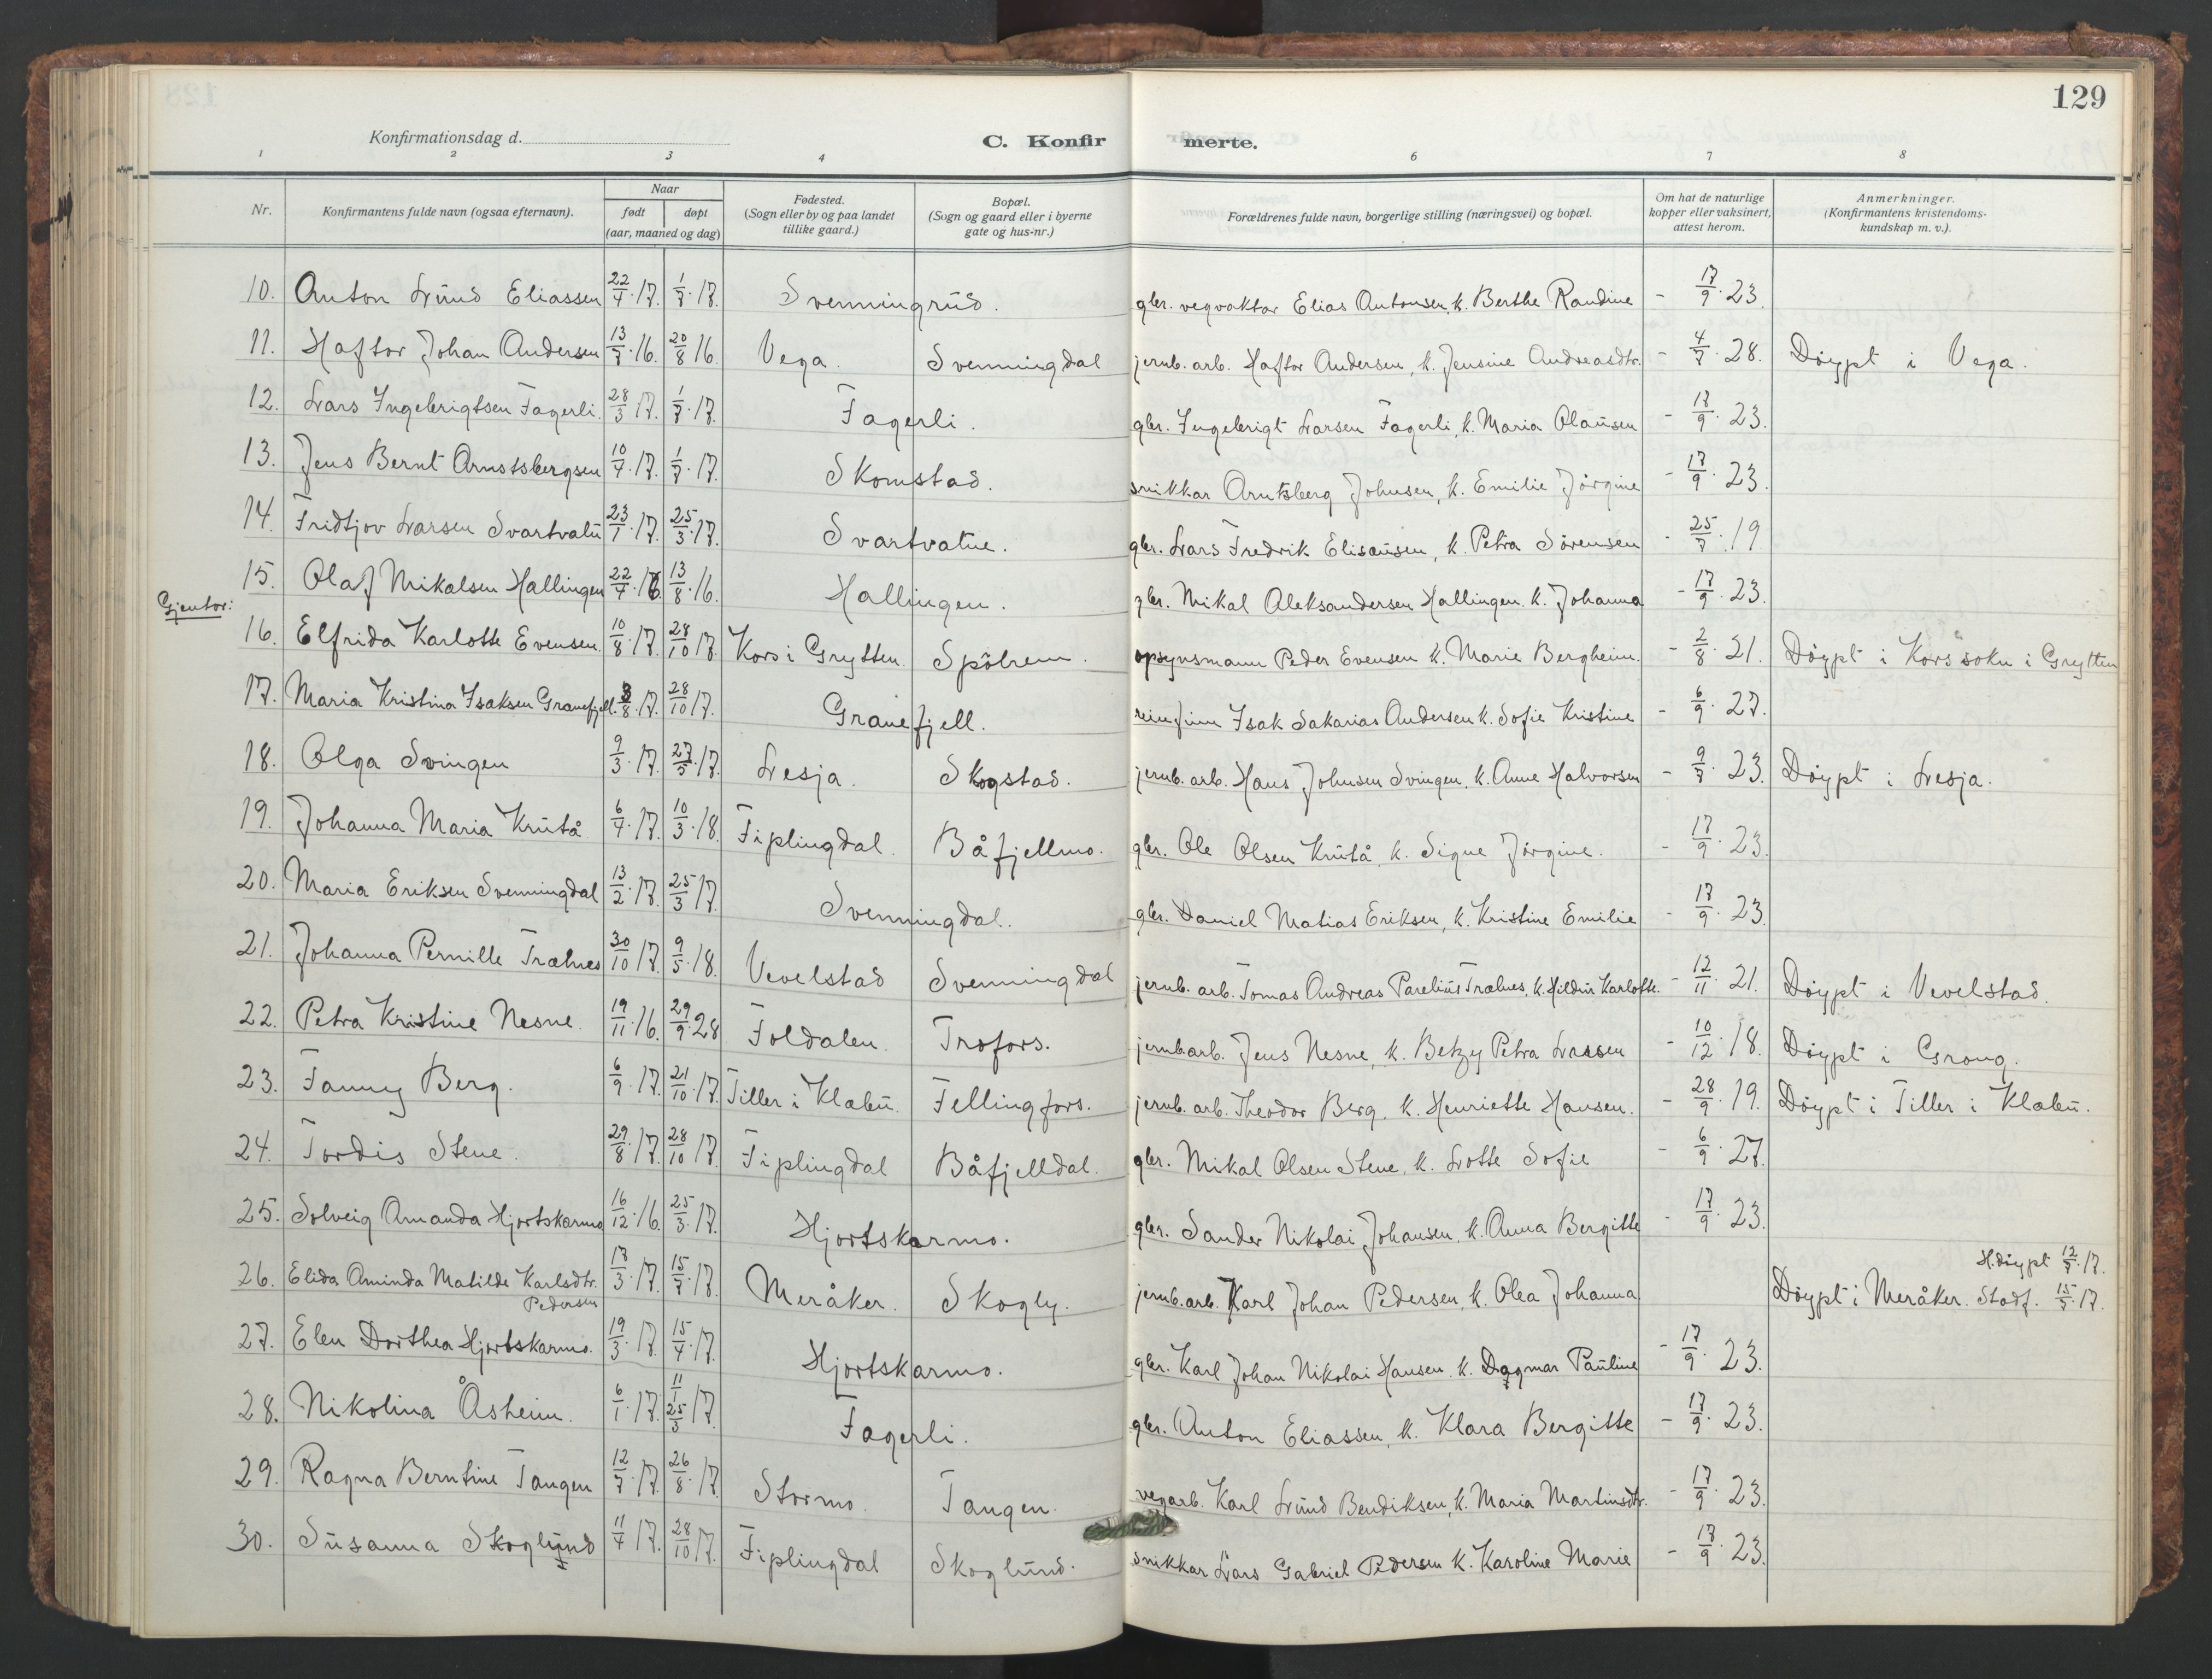 129
Konfirmationsdag d.
C. Konfirmerte.
1 2 3 4 6 7 8
Nr. Konfirmantens fulde navn (ogsaa efternavn). Naar født døpt (aar, maaned og dag) Fødested. (Sogn eller by og paa landet tillike gaard.) Bopæl. (Sogn og gaard eller i byerne gate og hus-nr.) Forældrenes fulde navn, borgerlige stilling (næringsvei) og bopæl. Om hat de naturlige kopper eller vaksinert, attest herom. Anmerkninger. (Konfirmantens kristendoms-kundskap m. v.).
10. Anton Lund Eliassen 22/4.17. 1/7.17. Svenningrud. gbr. vegvaktar Elias Antonsen, k. Berthe Randine - 17/9.23.
11. Haftor Johan Andersen 13/7.16. 20/8 16. Vega. Svenningdal jernb. arb. Haftor Andersen, k. Jensine Andreasdtr. - 4/7.28. Döypt i Vega.
12. Lars Ingebrigtsen Fagerli. 28/3 17. 1/7.17. Fagerli. gbr. Ingebrigt Larsen Fagerli, k. Maria Olausen - 17/9.23.
13. Jens Bernt Arnstsbergsen 10/4.17. 1/7.17. Skomstad. snikkar Arntsberg Johnsen, k. Emilie Jörgine - 17/9.23.
14. Fridtjov Larsen Svartvatn 23/1.17. 25/3.17. Svartvatne. gbr. Lars Fredrik Eliseusen, k. Petra Sörensen - 25/7.19
15. Olaf Mikalsen Hallingen 22/4.16. 13/8.16. Hallingen. gbr. Mikal Aleksandersen Hallingen. k. Johanna - 17/9.23.
Gjentor:
16. Elfrida Karlotte Evensen. 10/8.17. 28/10 17. Kors i Grytten. Spölrem. opsynsmann Peder Evensen k. Marie Bergheim. - 2/8.21. Döypt i Kors sokn i Grytten
17. Maria Kristina Isaksen Granefjell. 3/8.17. 28/10 17. Granefjell. reinfinn Isak Sakarias Andersen k. Sofie Kristine - 6/9.27.
18. Olga Svingen 9/3.17. 27/5.17. Lesja. Skogstad. jernb. arb. Hans Johnsen Svingen, k. Anne Halvorsen - 9/7.23. Döypt i Lesja.
19. Johanna Maria Krutå 6/4.17. 10/3.18. Fiplingdal. Båfjellmo. gbr. Ole Olsen Krutå, k. Signe Jörgine. - 17/9.23.
20. Maria Eriksen Svenningdal 13/2.17. 25/3 17. Svenningdal. gbr. Daniel Matias Eriksen, k. Kristine Emilie - 17/9.23.
21. Johanna Pernille Trælnes 30/10 17. 9/5.18. Vevelstad Svenningdal jernb. arb. Tomas Andreas Parelius Trælnes, k. Hildur Karlotte. - 12/11.21. Döypt i Vevelstad.
22. Petra Kristine Nesne. 19/11.16. 29/9.28 Foldalen. Trofors. jernb.arb. Jens Nesne, k. Betzy Petra Larsen - 10/12.18. Döypt i Grong.
23. Fanny Berg. 6/9.17. 21/10.17. Tiller i Klæbu. Fellingfors. jernb. arb. Theodor Berg, k. Henriette Hansen. - 28/9.19. Döypt i Tiller i Klæbu.
24. Tordis Stene. 29/8.17. 28/10 17. Fiplingdal Båfjelldal. gbr. Mikal Olsen Stene, k. Lotte Sofie - 6/9.27.
25. Solveig Amanda Hjortskarmo 16/12.16. 25/3.17. Hjortskarmo. gbr. Sander Nikolai Johansen, k. Anna Bergitte - 17/9.23.
26. Elida Aminda Matilde Karlsdtr. Pedersen 17/3.17. 15/7.17. Meråker. Skogly. jernb. arb. Karl Johan Pedersen, k. Olea Johanna H.döypt 12/7.17. Döypt i Meråker. Stadf. 15/7.17.
27. Elen Dorthea Hjortskarmo. 19/3.17. 15/4.17. Hjortskarmo. gbr. Karl Johan Nikolai Hansen. k. Dagmar Pauline - 17/9.23.
28. Nikolina Åsheim. 6/1.17. 11/1 25/3.17. Fagerli. gbr. Anton Eliassen, k. Klara Bergitte - 17/9.23.
29. Ragna Berntine Tangen 12/7.17. 26/8.17. Stormo. Tangen. vegarb. Karl Lund Bendiksen, k. Maria Martinsdtr. - 17/9.23.
30. Susanna Skoglund 11/4 17. 28/10 17. Fiplingdal Skoglund. snikkar Lars Gabriel Pedersen k. Karoline Marie - 17/9.23.